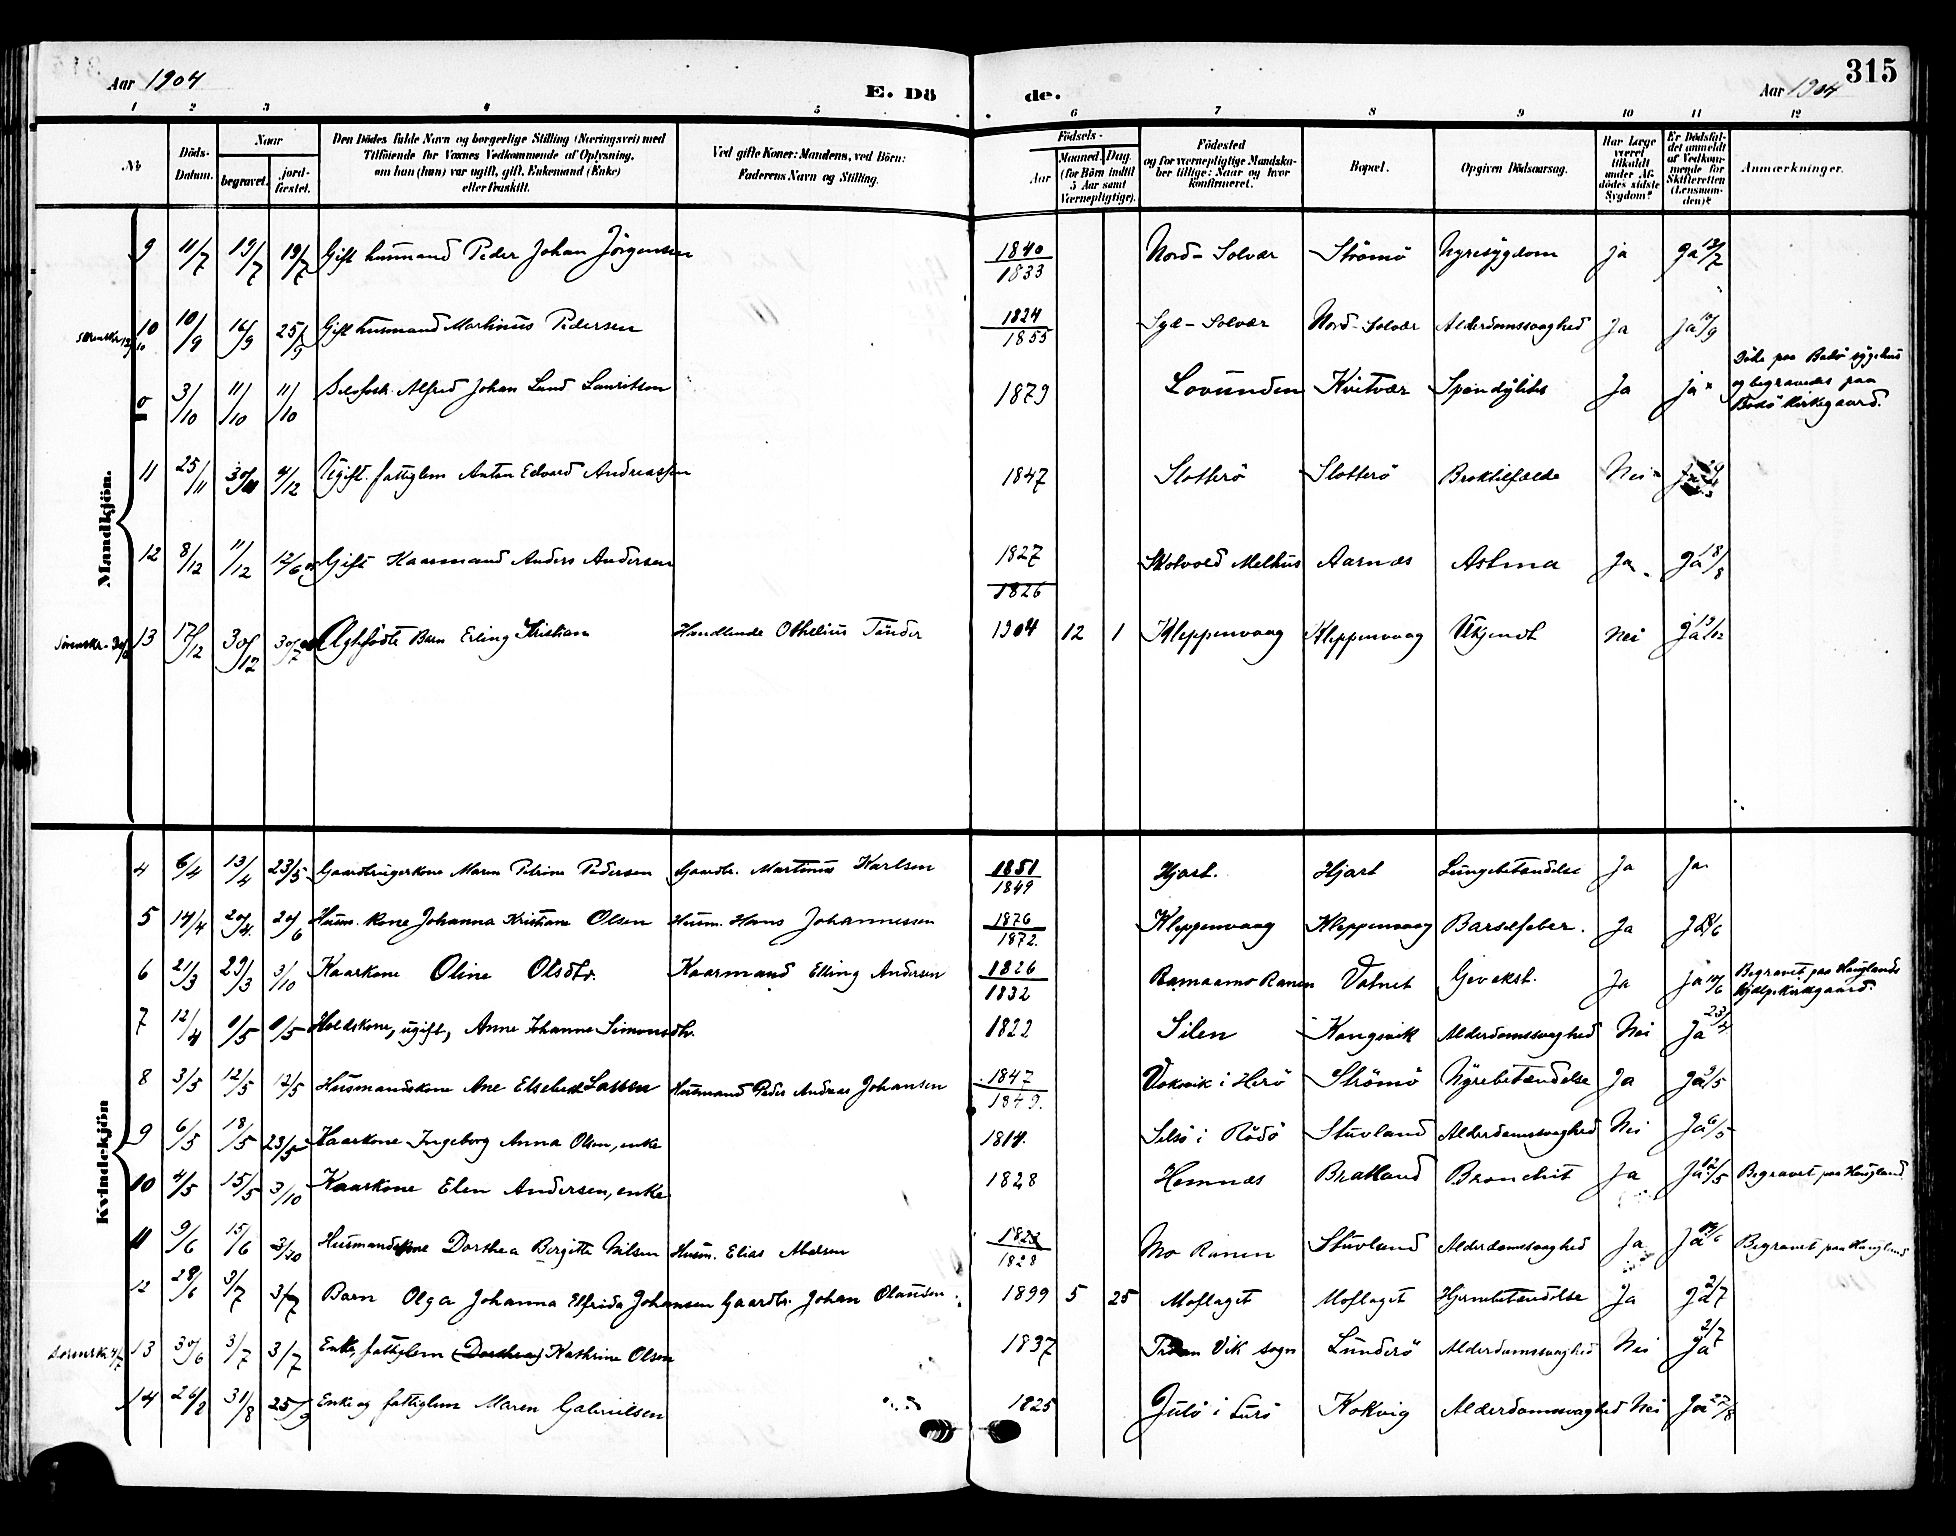 315
Aar 1904 E. Dö de. Aar 1904
1 2 3 4 5 6 7 8 9 10 11 12
№ Döds-Datum. Naar begravet. jordfæstet. Den Dödes fulde Navn og borgerlige Stilling (Næringsvei) med Tilföiende for Voxnes Vedkommende af Oplysning, om han (hun) var ugift, gift, Enkemand (Enke) eller fraskilt. Ved gifte Koner: Mandens, ved Börn: Faderens Navn og Stilling. Födsels- Aar Maaned. Dag. (for Börn indtil 5 Aar samt Værnepligtige). Födested og for værnepligtige Mandskaber tillige: Naar og hvor konfirmeret. Bopæl. Opgiven Dödsaarsag. Har Læge været tilkaldt under Afdödes sidste Sygdom? Er Dödsfaldet anmeldt af Vedkommende for Skifteretten (Lensmanden)? Anmærkninger.
Mandkjön.
9 11/7 19/7 19/7 Gift husmand Peder Johan Jörgensen 1840 1833 Nord-Solvær Strömö Nyresygdom ja Ja 13/7
10 10/9 16/9 25/9 Gift husmand Martinus Pedersen 1824 1855 Syd-Solvær Nord-Solvær Alderdomssvaghed Ja Ja
0 3/10 11/10 11/10 Selvfosk. Alfred Johan Lund Lauritsen 1879 Lovunden Kvitvær Spondylitis Ja ja Döde paa Bodö sygehus og begravedes paa Bodö Kirkegaard.
11 25/11 30/11 4/12 Ugift fattiglem Anton Edvard Andreassen 1847 Slotterö Slotterö Broktilfælde Nei
12 8/12 11/12 12/6 05 Gift Kaarmand Anders Andersen 1827 1826 Skotvold Melhus Aarnæs Astma Ja Ja 18/8
13 17/12 30/12 Barn Erling Kristian Handlende Othelius Tönder 1904 12 1 Kleppenvaag Kleppenvaag Ukjendt Nei Ja 19/12
Kvindekjön
4 6/4 13/4 23/5 Gaardbrugerkone Maren Petrine Pedersen Gaardbr. Martinus Karlsen 1851 1849 Hjart. Hjart Lungebetændelse Ja Ja
5 14/4 20/4 20/6 Husm. kone Johanna Kristiane Olsen Husm. Hans Johannessen 1876 1872. Kleppenvaag Kleppenvaag Barselfeber. Ja Ja
6 21/3 29/3 3/10 Kaarkone Oline Olsdtr. Kaarmand Elling Andersen 1826 1832 Ranen Vatnet Ja Ja 14/6 Begravet paa Hauglands Hjælpekirkegaard.
7 12/4 9/5 9/5 Holdskone, ugift, Anne Johanne Simonsdtr. 1822 Silen Kongsvik Alderdomssvaghed Nei Ja
8 3/5 12/5 12/5 Husmandskone Ane Elsebet Larsen Husmand Peder Andreas Johansen 1847 1849. Vokvik i Herö Strömö Nyrebetændelse Ja Ja 9/5
9 6/5 18/5 23/5 Kaarkone Ingeborg Anna Olsen, enke 1814. Selsö i Rödö Stuvland Alderdomssvaghed Nei Ja 6/5
10 4/5 15/5 3/10 Kaarkone Elen Andersen, enke 1828 Hemnæs Bratland Bronchit Ja Ja 12/5 Begravet paa Haugland
11 9/6 15/6 3/10 Husmandskone Dorthea Bergitte Nilsen Husm. Elias Abelsen 1823 1828 Mo Ranen Stuvland Alderdomssvaghed Ja Ja Begravet paa Haugland
12 28/6 3/7 3/7 Barn Olga Johanna Elfrida Johansen Gaardbr. Johan Olausen 1899 5 25 Moflaget Moflaget Hjernebetændelse Ja Ja 2/7
13 30/6 3/7 3/7 Enke, fattiglem (Dorthea) Kathrine Olsen 1837 Vik sogn Lunderö Alderdomssvaghed Nei Ja 2/7
14 31/8 25/9 Enke og fattiglem Maren Gabrielsen 1825 Julö i Lurö Kokvig Alderdomssvaghed Nei Ja 27/8